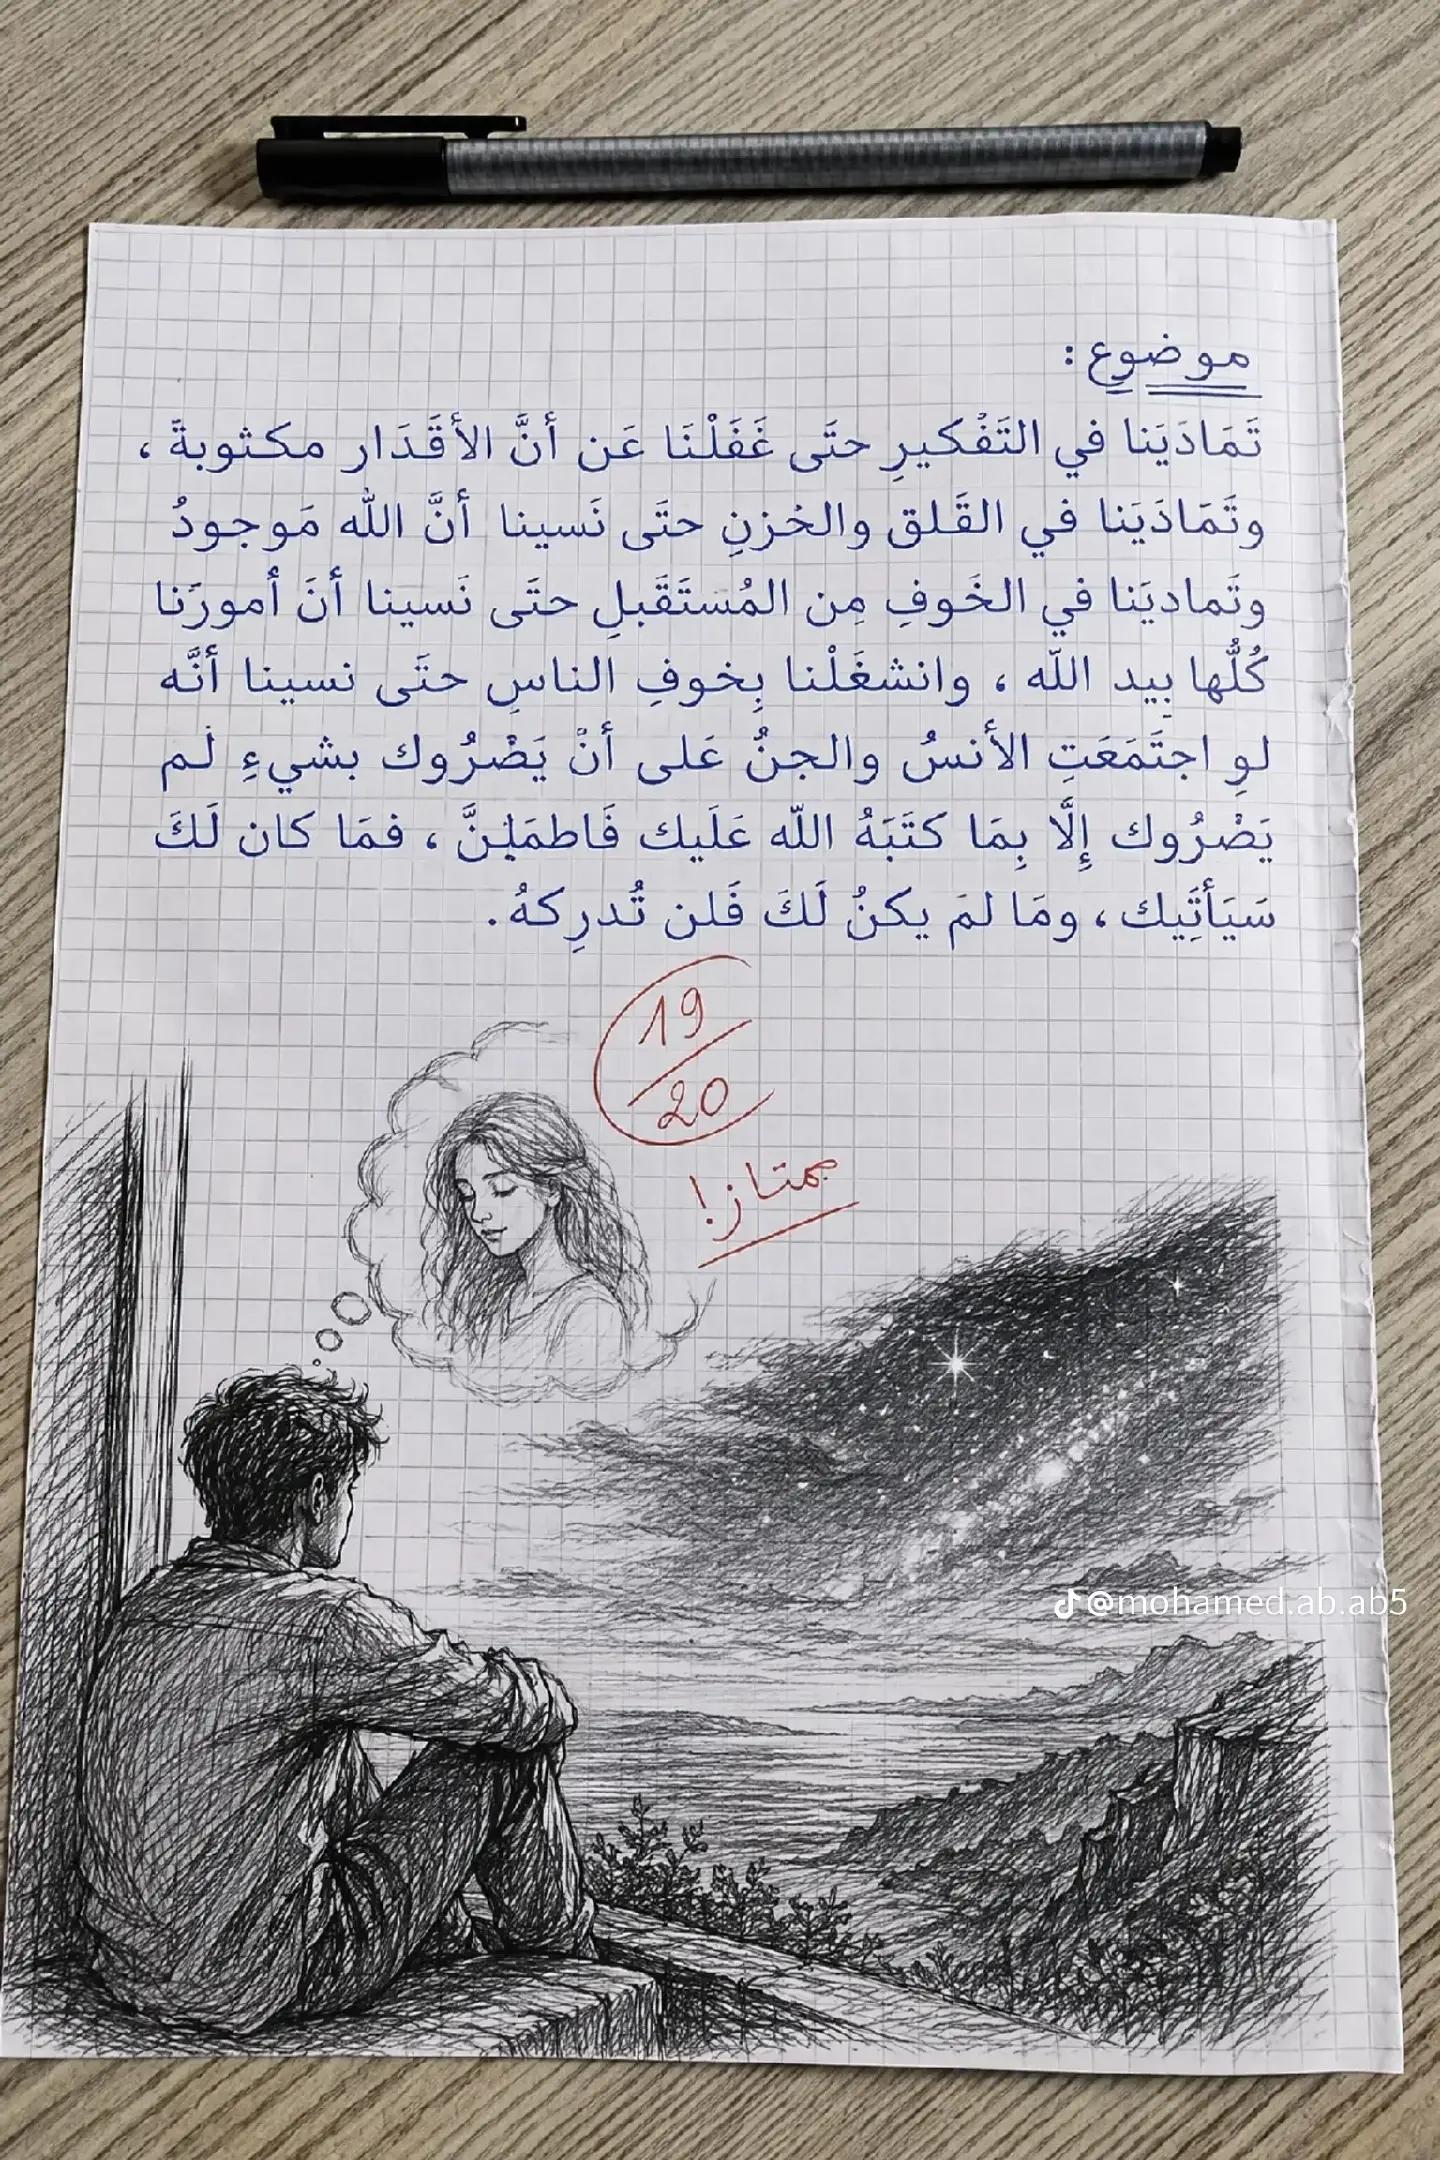 موضوع :
تَمَادَيَنا في التَفْكيرِ حتَى غَفَلْنَا عَن أنَّ الأقَدَار مكثوبةَ ،
وتَمَادَيَنا في القَلق والخزنِ حتَى نَسينا أنَّ الله مَوجودُ
وتَماديَنا في الخَوفِ مِن المُستَقَبلِ حتَى نَسينا أنَ أمورَنا
كُلُّها بِيد اللّه ، وانشغَلْنا بِخوفِ الناسِ حتَى نسينا أنَّه
لوِ اجتَمَعَتِ الأنسُ والجنُ عَلى أنْ يَضْرُوك بشيءِ لَم
يَضْرُوك إِلَّا بِمَا كتَبَهُ اللّه عَلَيك فَاطمَئِنَّ ، فمَا كان لَكَ
سَيَأتَيِك ، ومَا لمَ يكنُ لَكَ فَلن تُدرِكهُ .
19
20
ممتاز!
@mohamed.ab.ab5